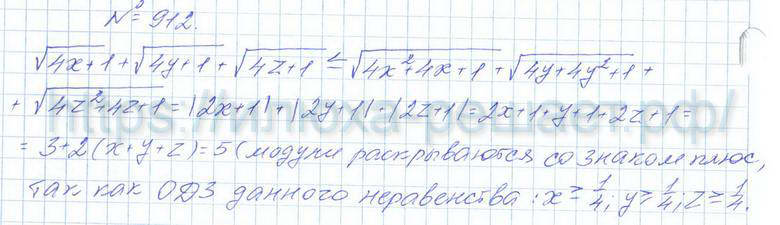 № 912.
√4x+1 + √4y+1 + √4z+1 ≤ √4x²+4x+1 + √4y+4y²+1 +
+ √4z²+4z+1 = |2x+1| + |2y+1| + |2z+1| = 2x+1+y+1+2z+1 =
= 3+2(x+y+z) = 5 (модули раскрываются со знаком плюс,
так как ОДЗ данного неравенства: x ≥ 1/4; y ≥ 1/4; z ≥ 1/4.